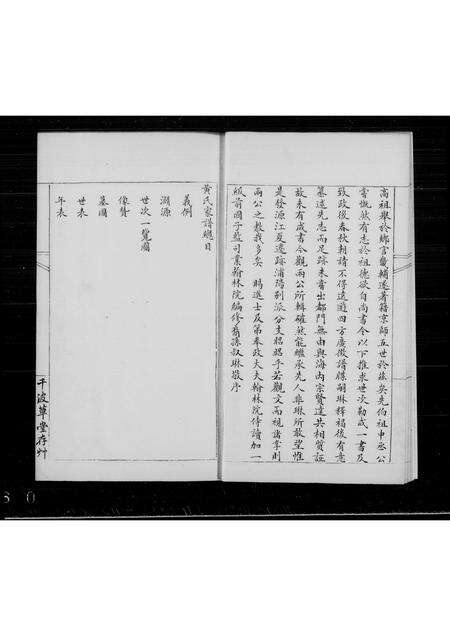 高祖舉於鄉官畿輔遂著籍京師五世於茲矣先伯祖申丞公
嘗慨然有志於祖德欲自尚書令以下推求世次勒成一書及
致政後春秋朝請不得遠遊四方廣徵譜牒嗣琳釋褐後有意
纂述先志而足跡未嘗出都門無由與海內宗賢達共相質証
故未有成書今觀兩公所輯確然能繼承先人琳所歎望惟
是發源江夏遷跡浦陽別派分支昭昭乎若觀文而視諸掌則
兩公之教我多矣 賜進士及第奉政大夫翰林院侍讀加一
級前國子監司業翰林院編修裔孫叔琳敬序
黃氏家譜總目
義例
溯源
世次一覽圖
像贊
墓圖
世表
年表
千波草堂存艸